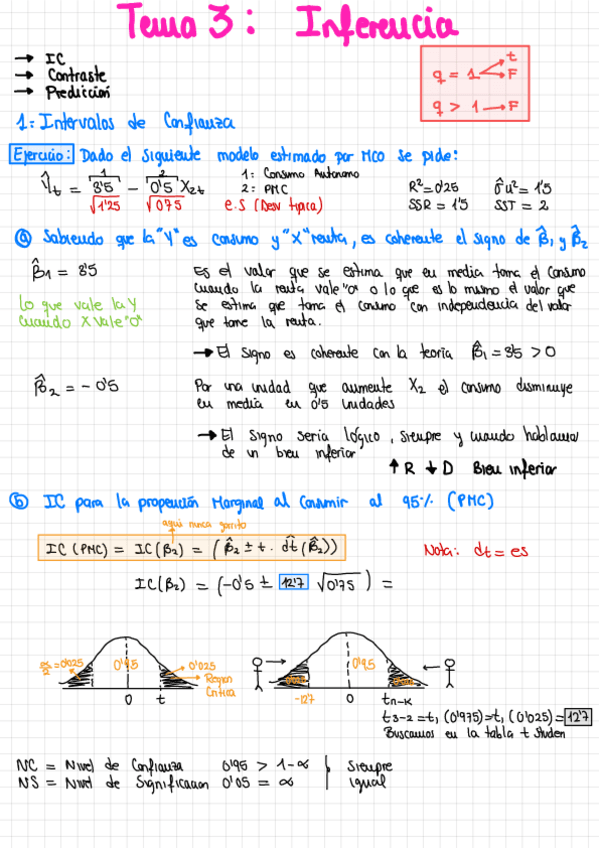 Tema 3: Inferencia
→ IC
→ Contraste
→ Predicción
q = 1 < t F
q > 1 → F
1= Intervalos de Confianza
Ejercicio: Dado el siguiente modelo estimado por MCO se pide:
Ŷt = 8'5 - 0'5 X2t
1 2
√1'25 √0'75
1: Consumo Autonomo
2: PMC
e.s (Desv tipica)
R²=0'25 σ̂u²=1'5
SSR = 1'5 SST = 2
a) Sabiendo que la "Y" es consumo y "X" renta, es coherente el signo de β̂1 y β̂2
β̂1 = 8'5
Es el valor que se estima que en media toma el consumo
cuando la renta vale "0" o lo que es lo mismo el valor que
se estima que toma el consumo con independencia del valor
que tome la renta.
Lo que vale la Y
cuando X vale "0"
→ El signo es coherente con la teoría β̂1 = 8'5 > 0
β̂2 = - 0'5
Por una unidad que aumente X2 el consumo disminuye
en media en 0'5 unidades
→ El signo sería lógico, siempre y cuando hablamos
de un bien inferior
↑ R ↓ D Bien inferior
b) IC para la propención Marginal al Consumir al 95% (PMC)
aqui nunca gorrito
IC (PMC) = IC(β2) = (β̂2 ± t · d̂t (β̂2))
Nota: dt = es
IC(β2) = (-0'5 ± 12'7 √0'75 ) =
α/2 = 0'025 0'95 0'025
Region
Critica
0 t
0'95
-12'7 0 tn-k
t3-2 = t1 (0'975) = t1 (0'025) = 12'7
Buscamos en la tabla t Studen
NC = Nivel de Confianza 0'95 > 1-α
NS = Nivel de Significacion 0'05 = α
Siempre
igual